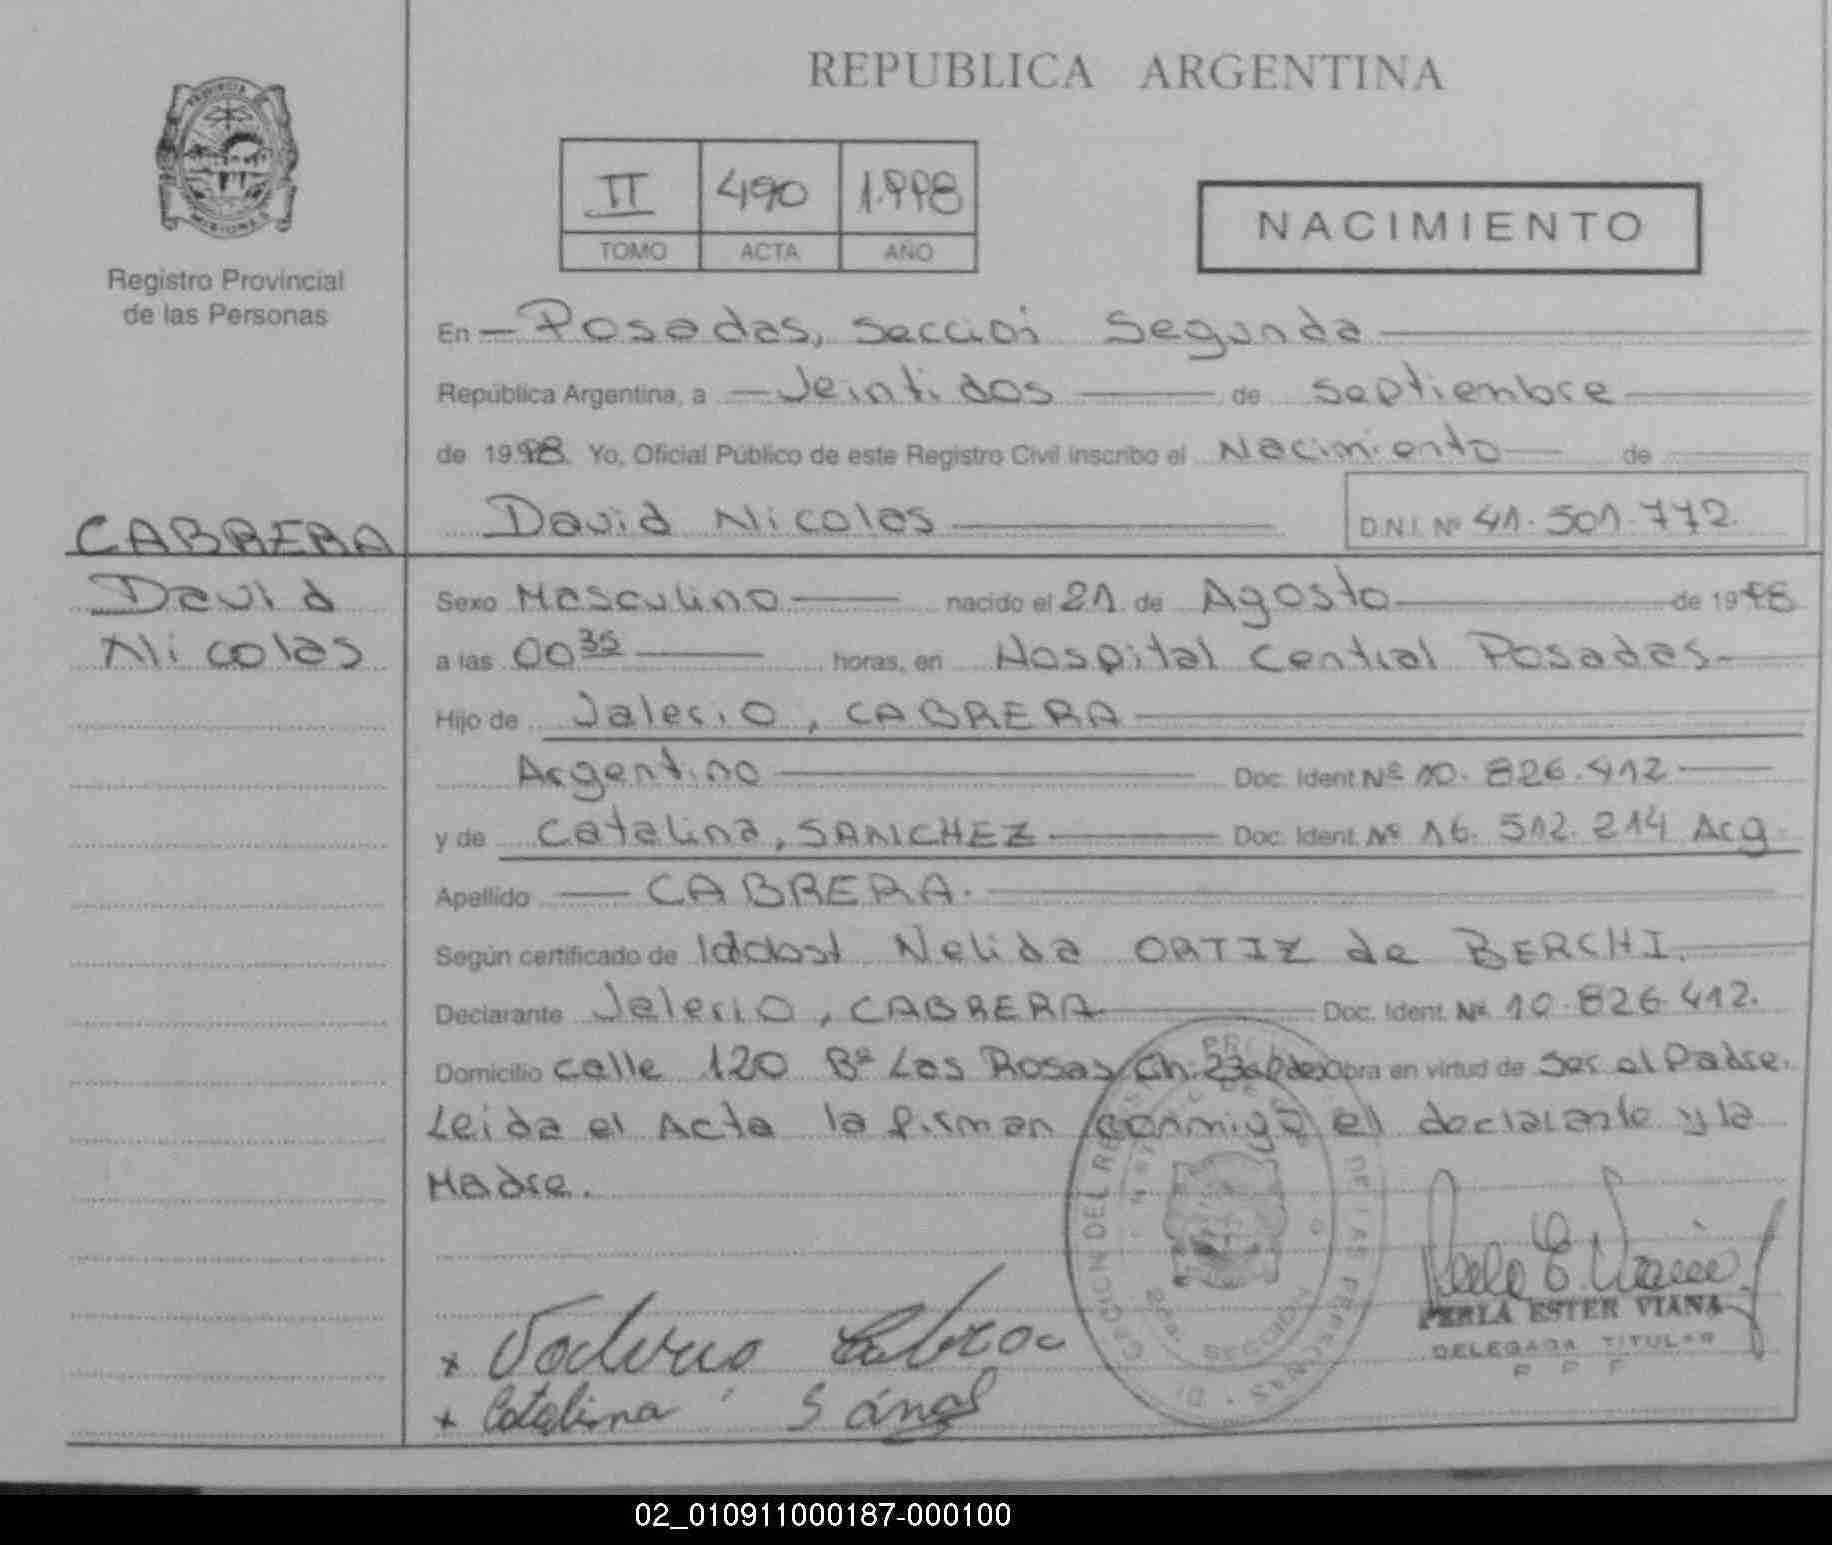 REPUBLICA ARGENTINA
PROVINCIA
MISIONES
Registro Provincial
de las Personas
II 490 1.998
TOMO ACTA AÑO
NACIMIENTO
En Posadas, Sección Segunda
República Argentina, a Veintidos de Septiembre
de 1998. Yo, Oficial Público de este Registro Civil inscribo el Nacimiento de
David Nicolas D.N.I. Nº 41.501.772.
CABRERA
David
Nicolas
Sexo Masculino nacido el 21 de Agosto de 1998
a las 00 35 horas, en Hospital Central Posadas
Hijo de Valerio, CABRERA
Argentino Doc. Ident Nº 10.826.412
y de Catalina, SANCHEZ Doc. Ident. Nº 16.512.214 Arg
Apellido CABRERA.
Según certificado de Nelida ORTIZ de BERCHI.
Declarante Valerio, CABRERA Doc. Ident. Nº 10.826.412.
Domicilio calle 120 Bº Las Rosas Ch. Obra en virtud de Ser el Padre.
Leida el Acta la firman conmigo el declarante y la
Madre.
x Valerio Cabrera
x Catalina
PERLA ESTER VIANA
DELEGADA TITULAR
R P P
02_010911000187-000100